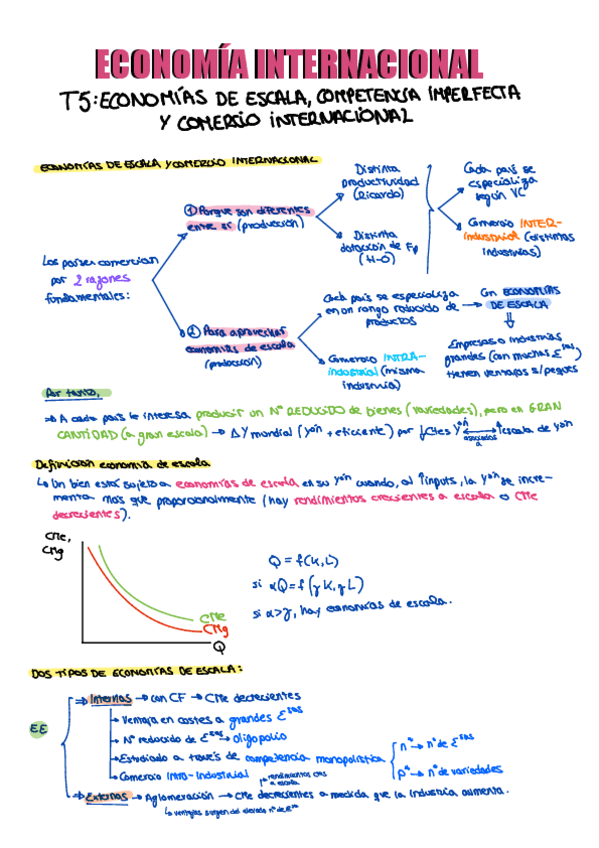 ECONOMÍA INTERNACIONAL
T5: ECONOMÍAS DE ESCALA, COMPETENCIA IMPERFECTA
Y COMERCIO INTERNACIONAL
ECONOMÍAS DE ESCALA Y COMERCIO INTERNACIONAL
Los países comercian
por 2 razones
fundamentales:
① Porque son diferentes
entre sí (producción)
Distinta
productividad
(Ricardo)
Distinta
dotación de Fp
(H-O)
Cada país se
especializa
según VC
Comercio INTER-
industrial (distintas
industrias)
② Para aprovechar
economías de escala
(producción)
Cada país se especializa
en un rango reducido de
productos
Con ECONOMÍAS
DE ESCALA
Empresas o industrias
grandes (con muchas Esas)
tienen ventajas s/peques
Comercio INTRA-
industrial (misma
industria)
Por tanto,
⇒ A cada país le interesa producir un Nº REDUCIDO de bienes (variedades), pero en GRAN
CANTIDAD (a gran escala) → Δ Y mundial (yón + eficiente) por ↓Ctes Yón ↔ ↑escala de yón
asociados
a
Definición economía de escala
↳ Un bien está sujeto a economías de escala en su yón cuando, al ↑inputs, la yón se incre-
menta más que proporcionalmente (hay rendimientos crecientes a escala o CMe
decrecientes).
CMe,
CMg
CMe
CMg
Q
Q = f(K,L)
si αQ = f(γK, γL)
si α>γ, hay economías de escala.
DOS TIPOS DE ECONOMÍAS DE ESCALA:
EE
⇒ Internas → con CF → CMe decrecientes
→ Ventaja en costes a grandes Esas
→ Nº reducido de Esas → oligopolio
→ Estudiado a través de competencia monopolística
n* → nº de Esas
P* → nº de variedades
→ Comercio Intra-Industrial
rendimientos ctes
a escala
⇒ Externas → Aglomeración → CMe decrecientes a medida que la industria aumenta.
↳ ventajas surgen del elevado nº de Esas